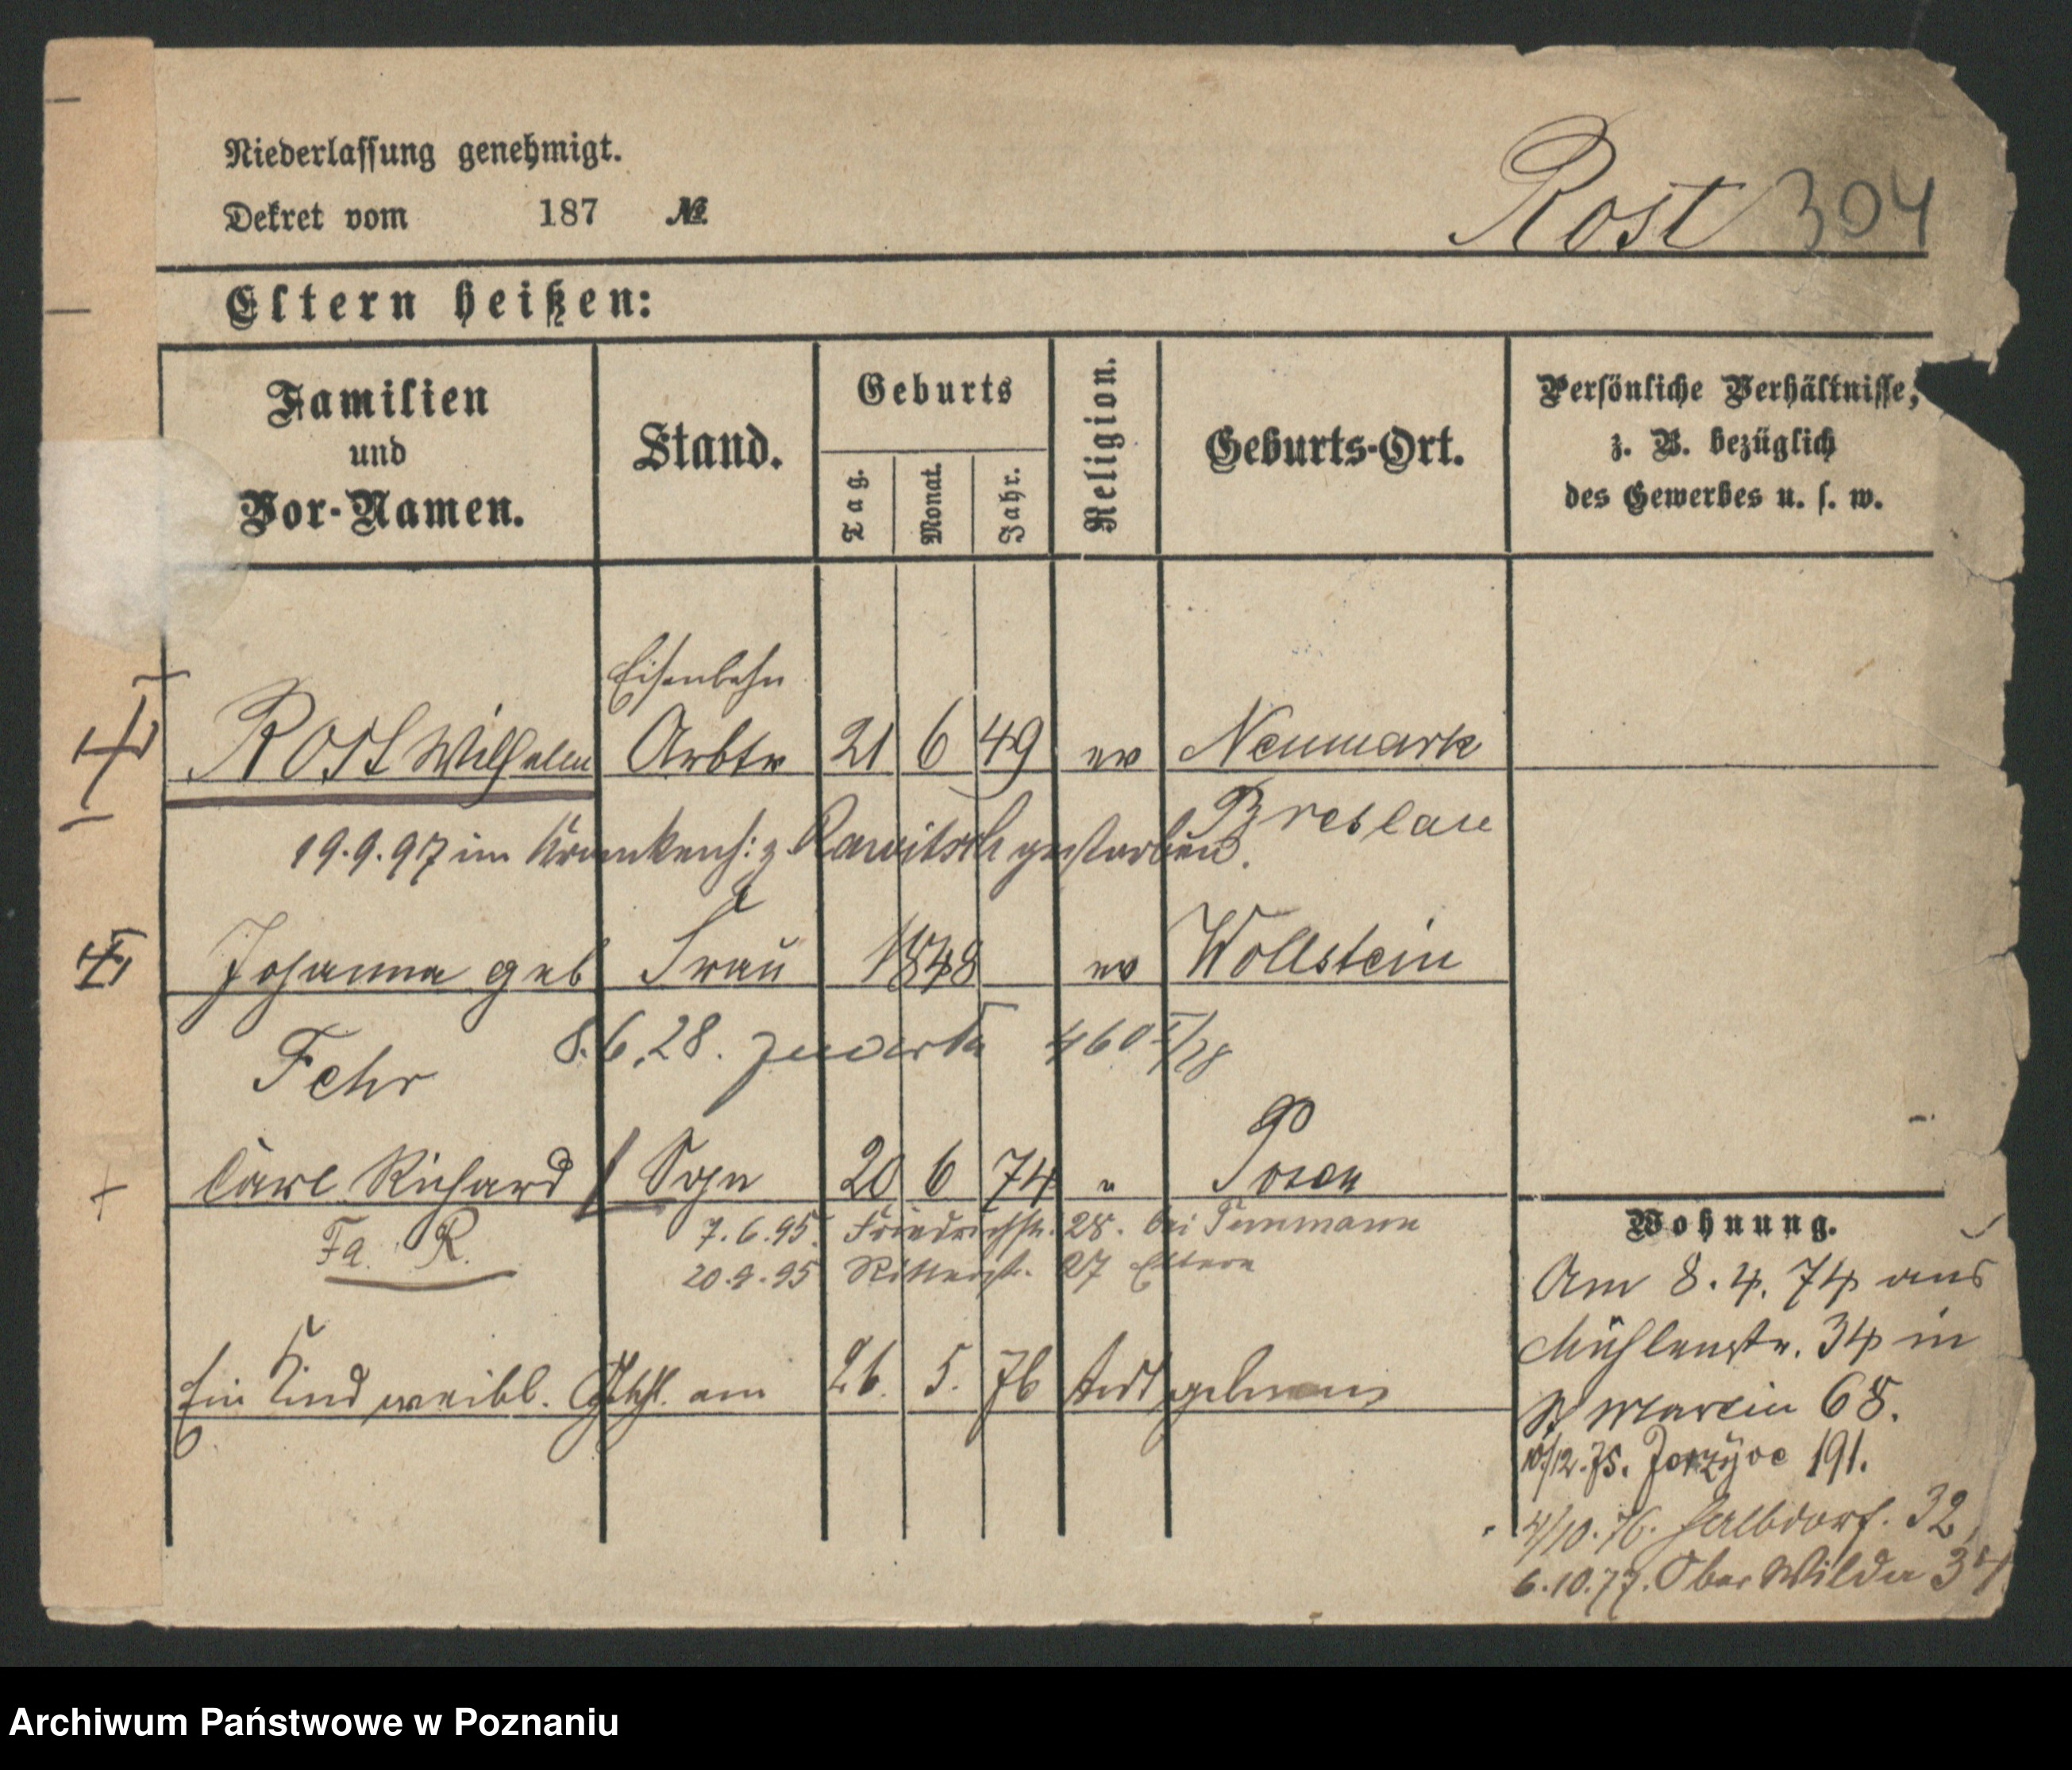 Niederlassung genehmigt.
Dekret vom 187 №
Rost 304
Eltern heißen:
Familien und Vor-Namen.
Stand.
Geburts
Tag. Monat. Jahr.
Religion.
Geburts-Ort.
Persönliche Verhältnisse,
z. B. bezüglich
des Gewerbes u. s. w.
Eisenbahn
Rost Wilhelm Arbtr 21 6 49 ev Neumark
Breslau
19.9.97 im Krankenh: z. Rawitsch gestorben.
Johanna geb Frau 1848 ev Wollstein
Fehr 8.6.28. 460
Carl Richard Sohn 20 6 74 " Posen
Fa. R. 7.6.95. Friedrichstr. 28. bei
20.9.95 Ritterstr. 27 Eltern
Ein Kind weibl. Gschl. am 26. 5. 76 todt geboren
Wohnung.
Am 8.4.74 aus
Mühlenstr. 34 in
St Martin 68.
10/12.75. Jerzyce 191.
4/10.76. Halbdorf. 32,
6.10.77. Ober Wilda
Archiwum Państwowe w Poznaniu